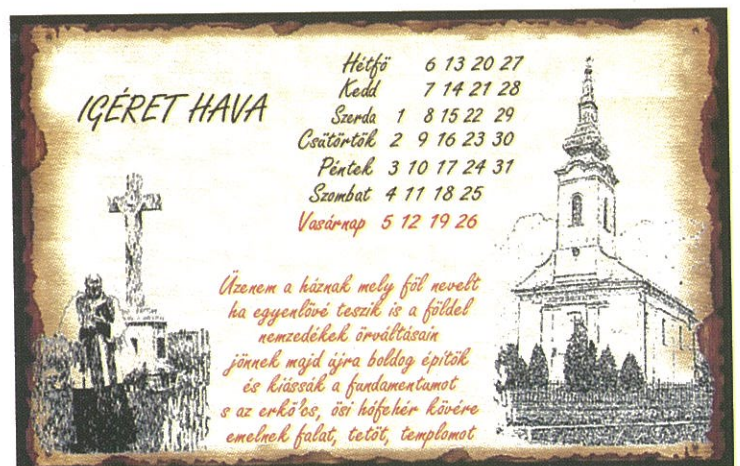 IGÉRET HAVA
Hétfö 6 13 20 27
Kedd 7 14 21 28
Szerda 1 8 15 22 29
Csütörtök 2 9 16 23 30
Péntek 3 10 17 24 31
Szombat 4 11 18 25
Vasárnap 5 12 19 26
Üzenem a háznak mely föl nevelt
ha egyenlövé teszik is a földel
nemzedékek örváltásain
jönnek majd újra boldog épitök
és kiássák a fundamentumot
s az erkö'cs, ösi hófehér kövére
emelnek falat, tetöt, templomot